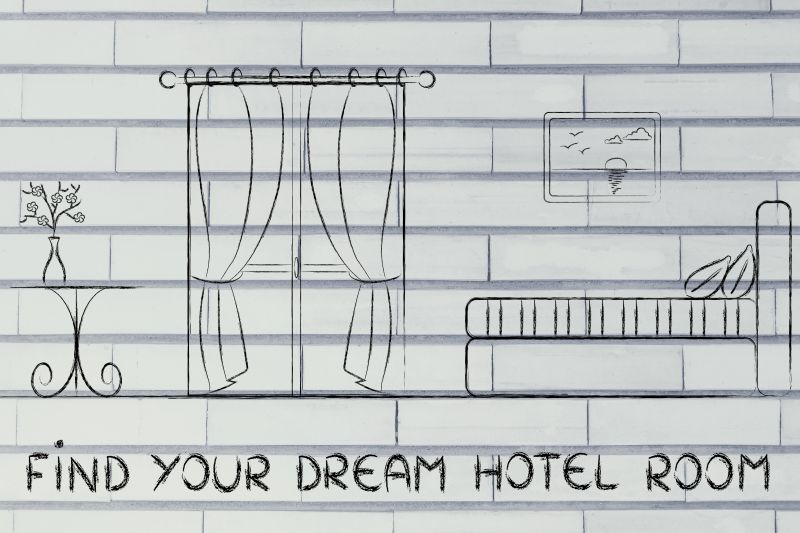 FiND YOUR DREAM HOTEL ROOM